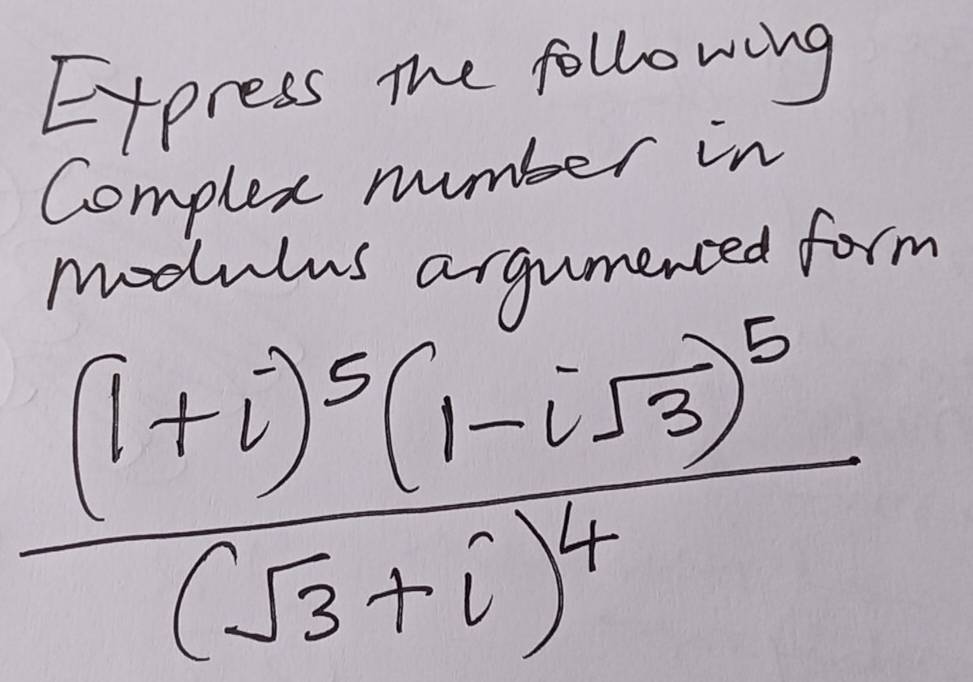 Express the following
Complex number in
modulus argumented form
(1+i)⁵(1-i√3)⁵
(√3+i)⁴